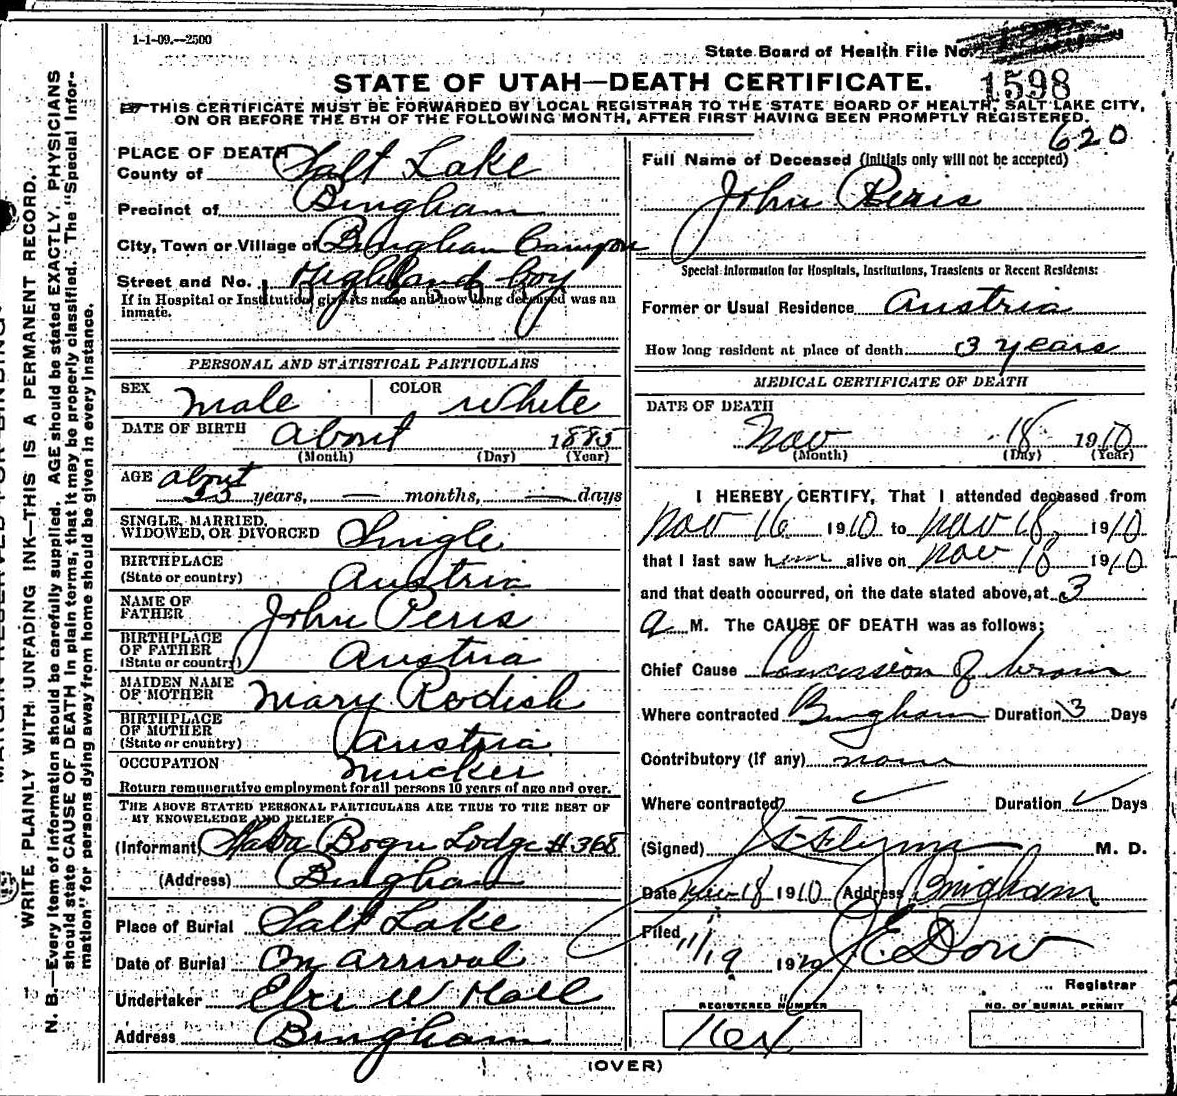 1-1-09.—2500
State Board of Health File No.
STATE OF UTAH—DEATH CERTIFICATE.
1598
THIS CERTIFICATE MUST BE FORWARDED BY LOCAL REGISTRAR TO THE STATE BOARD OF HEALTH, SALT LAKE CITY,
ON OR BEFORE THE 5TH OF THE FOLLOWING MONTH, AFTER FIRST HAVING BEEN PROMPTLY REGISTERED.
620
WRITE PLAINLY WITH UNFADING INK—THIS IS A PERMANENT RECORD.
N. B.—Every item of information should be carefully supplied. AGE should be stated EXACTLY. PHYSICIANS
should state CAUSE OF DEATH in plain terms, that it may be properly classified. The "Special Infor-
mation" for persons dying away from home should be given in every instance.
PLACE OF DEATH
County of Salt Lake
Precinct of Bingham
City, Town or Village of Bingham Canyon
Street and No. Highland Boy
If in Hospital or Institution, give its name and how long deceased was an
inmate.
PERSONAL AND STATISTICAL PARTICULARS
SEX Male COLOR White
DATE OF BIRTH About 1885
(Month) (Day) (Year)
AGE about
25 years, — months, — days
SINGLE, MARRIED,
WIDOWED, OR DIVORCED Single
BIRTHPLACE
(State or country) Austria
NAME OF
FATHER John Peris
BIRTHPLACE
OF FATHER
(State or country) Austria
MAIDEN NAME
OF MOTHER Mary Rodish
BIRTHPLACE
OF MOTHER
(State or country) Austria
OCCUPATION Mucker
Return remunerative employment for all persons 10 years of age and over.
THE ABOVE STATED PERSONAL PARTICULARS ARE TRUE TO THE BEST OF
MY KNOWLEDGE AND BELIEF
(Informant) Slava Bogu Lodge #368
(Address) Bingham
Place of Burial Salt Lake
Date of Burial On arrival
Undertaker Eber W Hall
Address Bingham
Full Name of Deceased (Initials only will not be accepted)
John Peris
Special Information for Hospitals, Institutions, Transients or Recent Residents:
Former or Usual Residence Austria
How long resident at place of death 3 years
MEDICAL CERTIFICATE OF DEATH
DATE OF DEATH
Nov 18 1910
(Month) (Day) (Year)
I HEREBY CERTIFY, That I attended deceased from
Nov 16 1910 to Nov 18, 1910
that I last saw him alive on Nov 18 1910
and that death occurred, on the date stated above, at 3
a M. The CAUSE OF DEATH was as follows:
Chief Cause Concussion of brain
Where contracted Bingham Duration 3 Days
Contributory (if any) none
Where contracted Duration Days
(Signed) M. D.
Date Nov 18 1910 (Address) Bingham
Filed 11/19 1910 J E Dow
Registrar
REGISTERED NUMBER
NO. OF BURIAL PERMIT
(OVER)